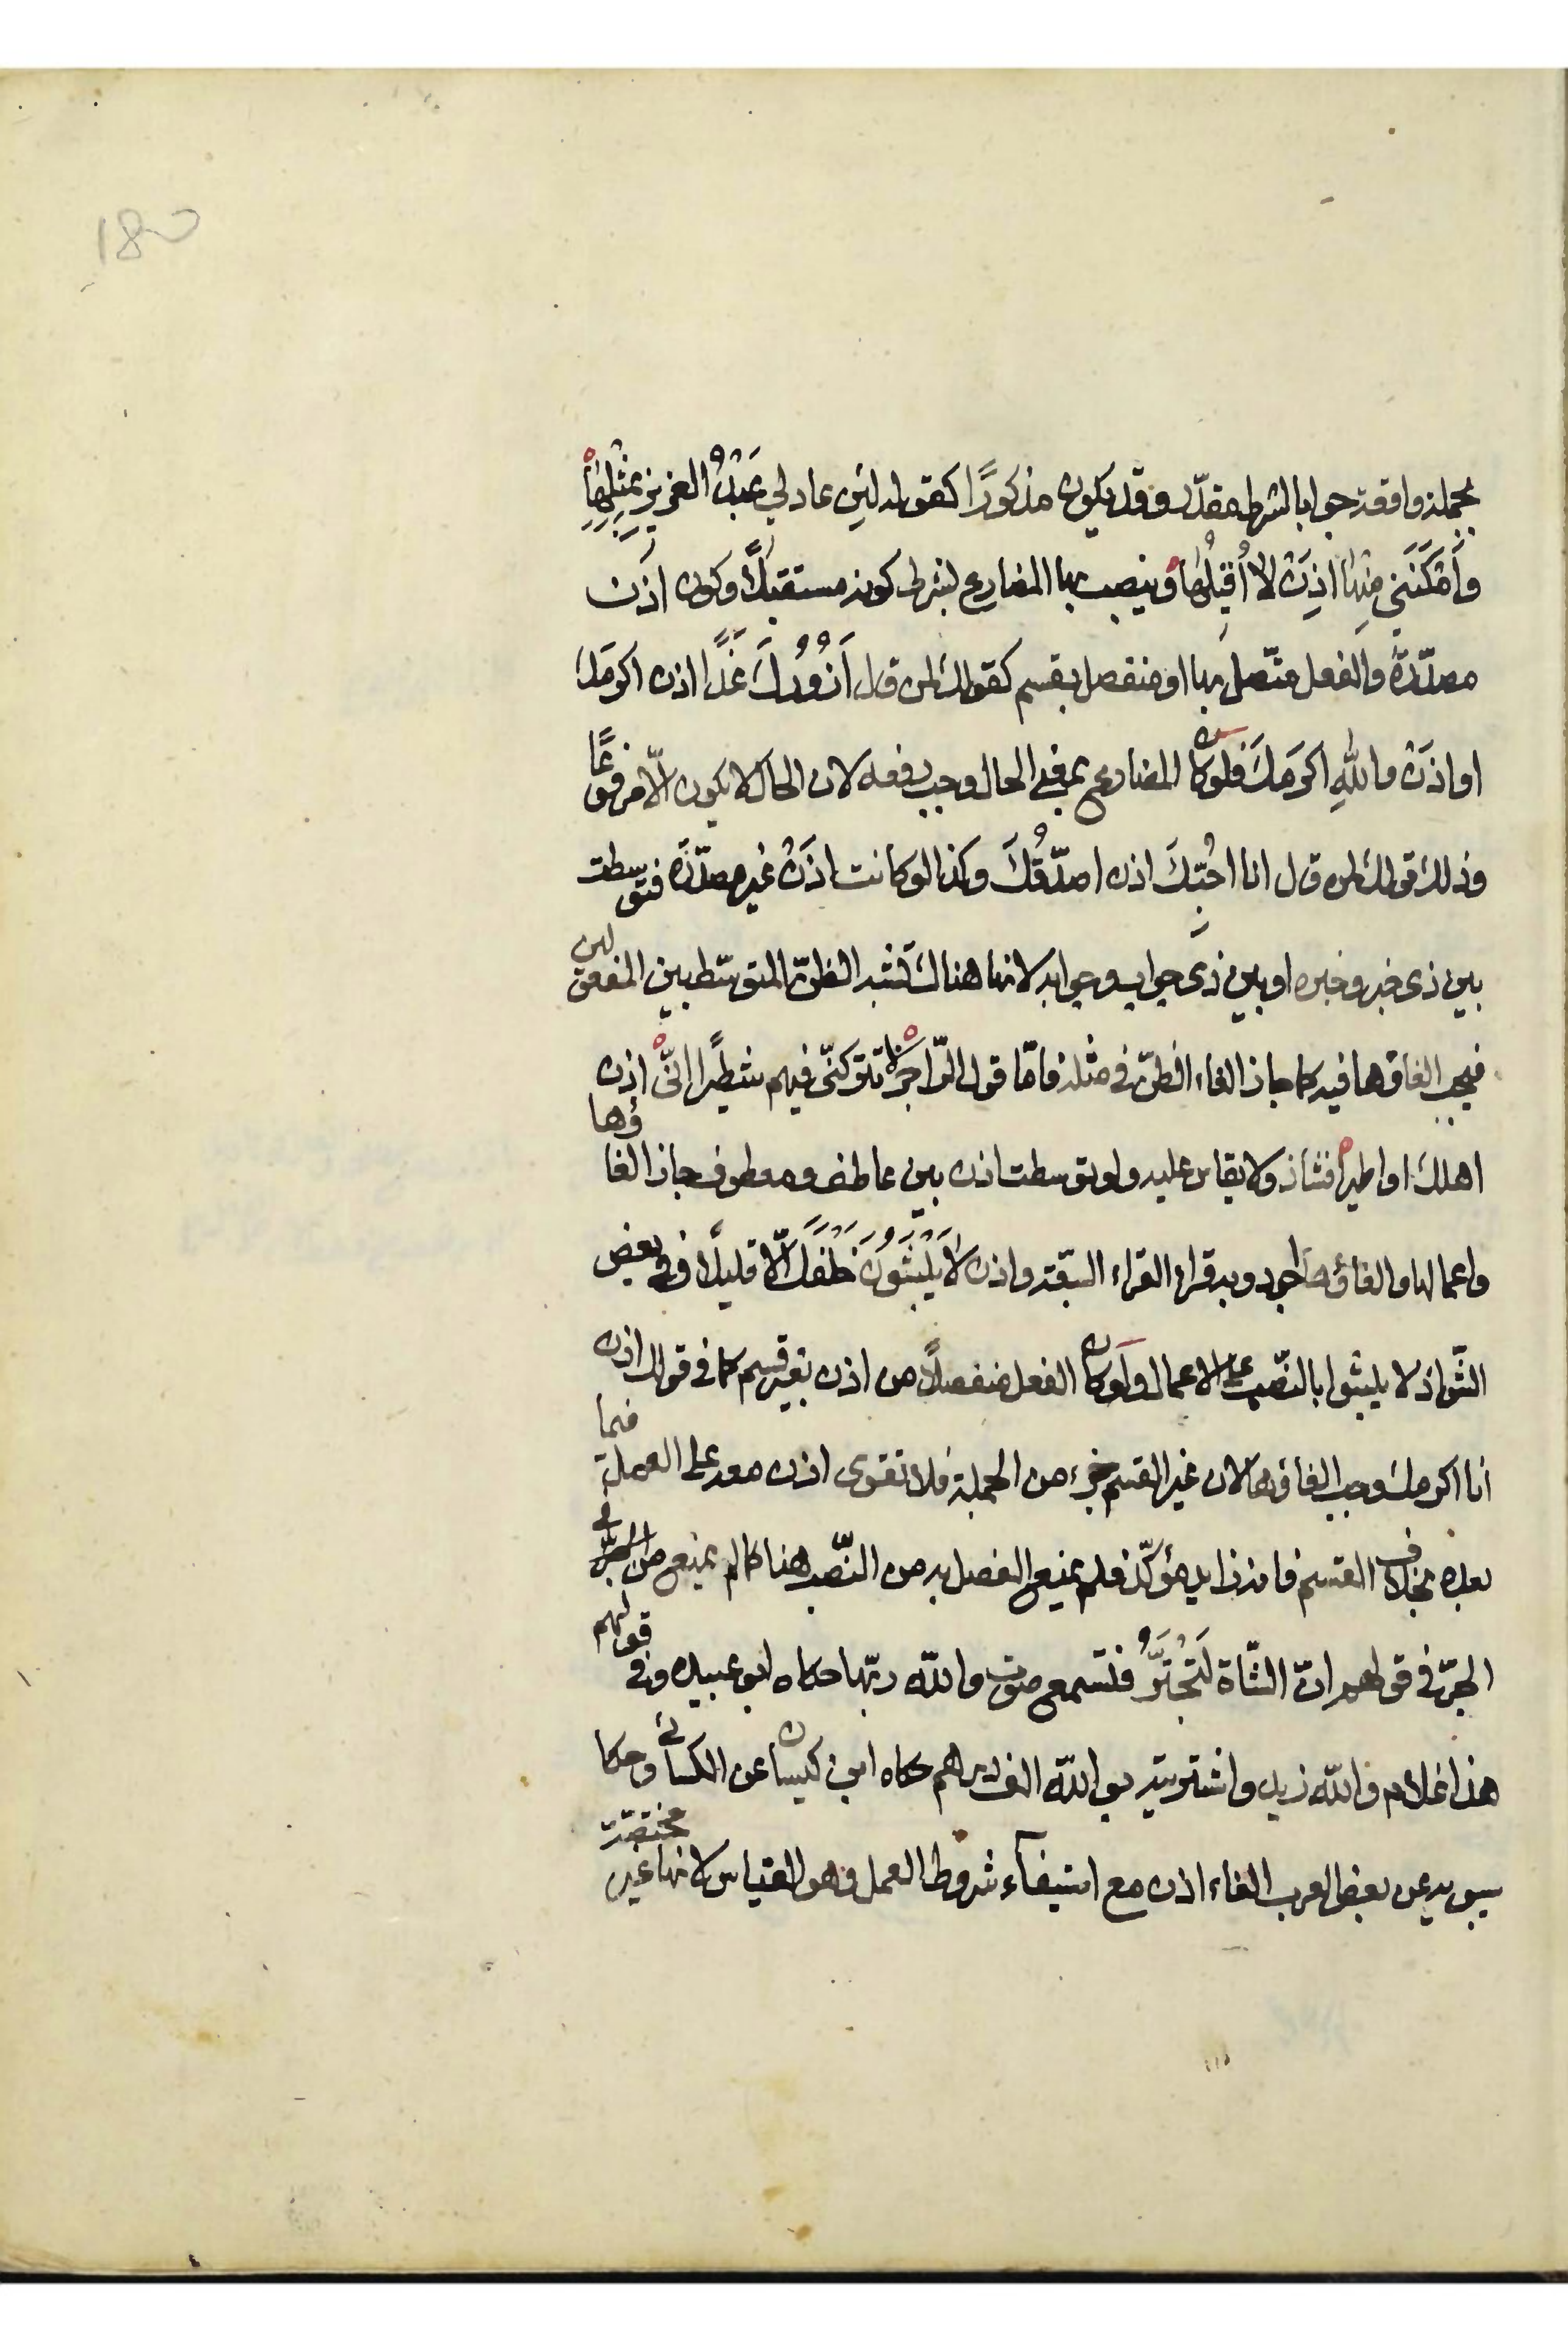 180
بجملة واقعة جوابا لشرط مقدّر وقد يكون مذكورًا كقوله لئن عاد لي عَبْدُ العزيزِ بمِثْلِهَا
وَأَمْكَنَنِي مِنْهَا اذِنْ لا أُقِيلُهَا وينصب بها المضارع بشرط كونه مستقبلًا وكون اذَن
مصدّرةً والفعل متّصل بها او منفصل بقسم كقولك لمن قال أَزُورُكَ غَدًا اذن اكرمَكَ
او اذَنْ واللّهِ اكرمَكَ فلو كان المضارع بمعنى الحال وجب رفعه لان الحال لا يكون الّا مرفوعًا
وذلك قولك لمن قال انا احُبِّكَ اذن اصدّقُكَ وكذا لو كانت اذَنْ غير مصدّرَة فتوسطت
بين ذى خبر وخبره او بين ذى جواب وجوابه لانها هناك تشبه الظنّ المتوسّط بين المفعولين
فيجب الغاؤها فيه كما جاز الغاء الظنّ في مثله فامّا قول الرّاجز لا تتركنّي فيهم شطيرًا انّي اذن
اهلك او اطيرا فشاذ ولا يقاس عليه ولو توسطت اذن بين عاطف ومعطوف جاز الغاؤها
واعمالها والغاؤها اجود وبه قراء القراء السّبعة واذن لَا يَلْبَثُونَ خَلْفَكَ الّا قليلًا وفي بعض
الشّواذ لا يلبثوا بالنّصب على الاعمال ولو كان الفعل منفصلًا من اذن بغير قسم كما في قولك اذن
انا اكرمك وجب الغاؤها لان غير القسم جزء من الجملة فلا تقوى اذن معه على العمل فيما
بعده بخلاف القسم فانه زايد مؤكّد فلم يمنع الفصل به من النّصب هنا كما لم يمنع من
الجرّ في قولهم انّ الشّاة لَتَجْتَرُّ فتسمع صوت واللّه ربّها حكاه ابو عبيده وفي قولهم
هذا غلام واللّه زيد واشتريته بو اللّه الف درهم حكاه ابن كيسان عن الكسائي وحكا
سيبويه عن بعض العرب الغاء اذن مع استيفآء شروط العمل وهو القياس لانها غير مختصّة